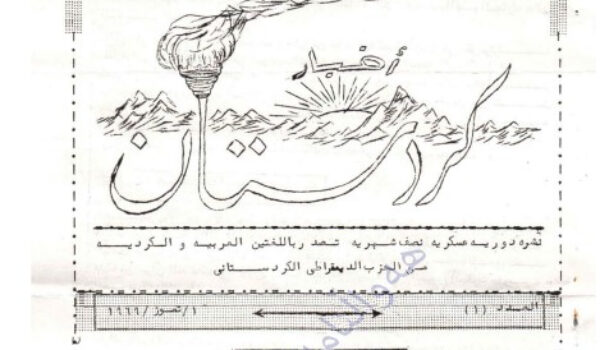 أخبار
كردستان
نشره دوريه عسكريه نصف شهريه تصدر باللغتين العربيه و الكرديه
عن الحزب الديمقراطي الكردستاني
العدد (١) ١/تموز/١٩٦٦